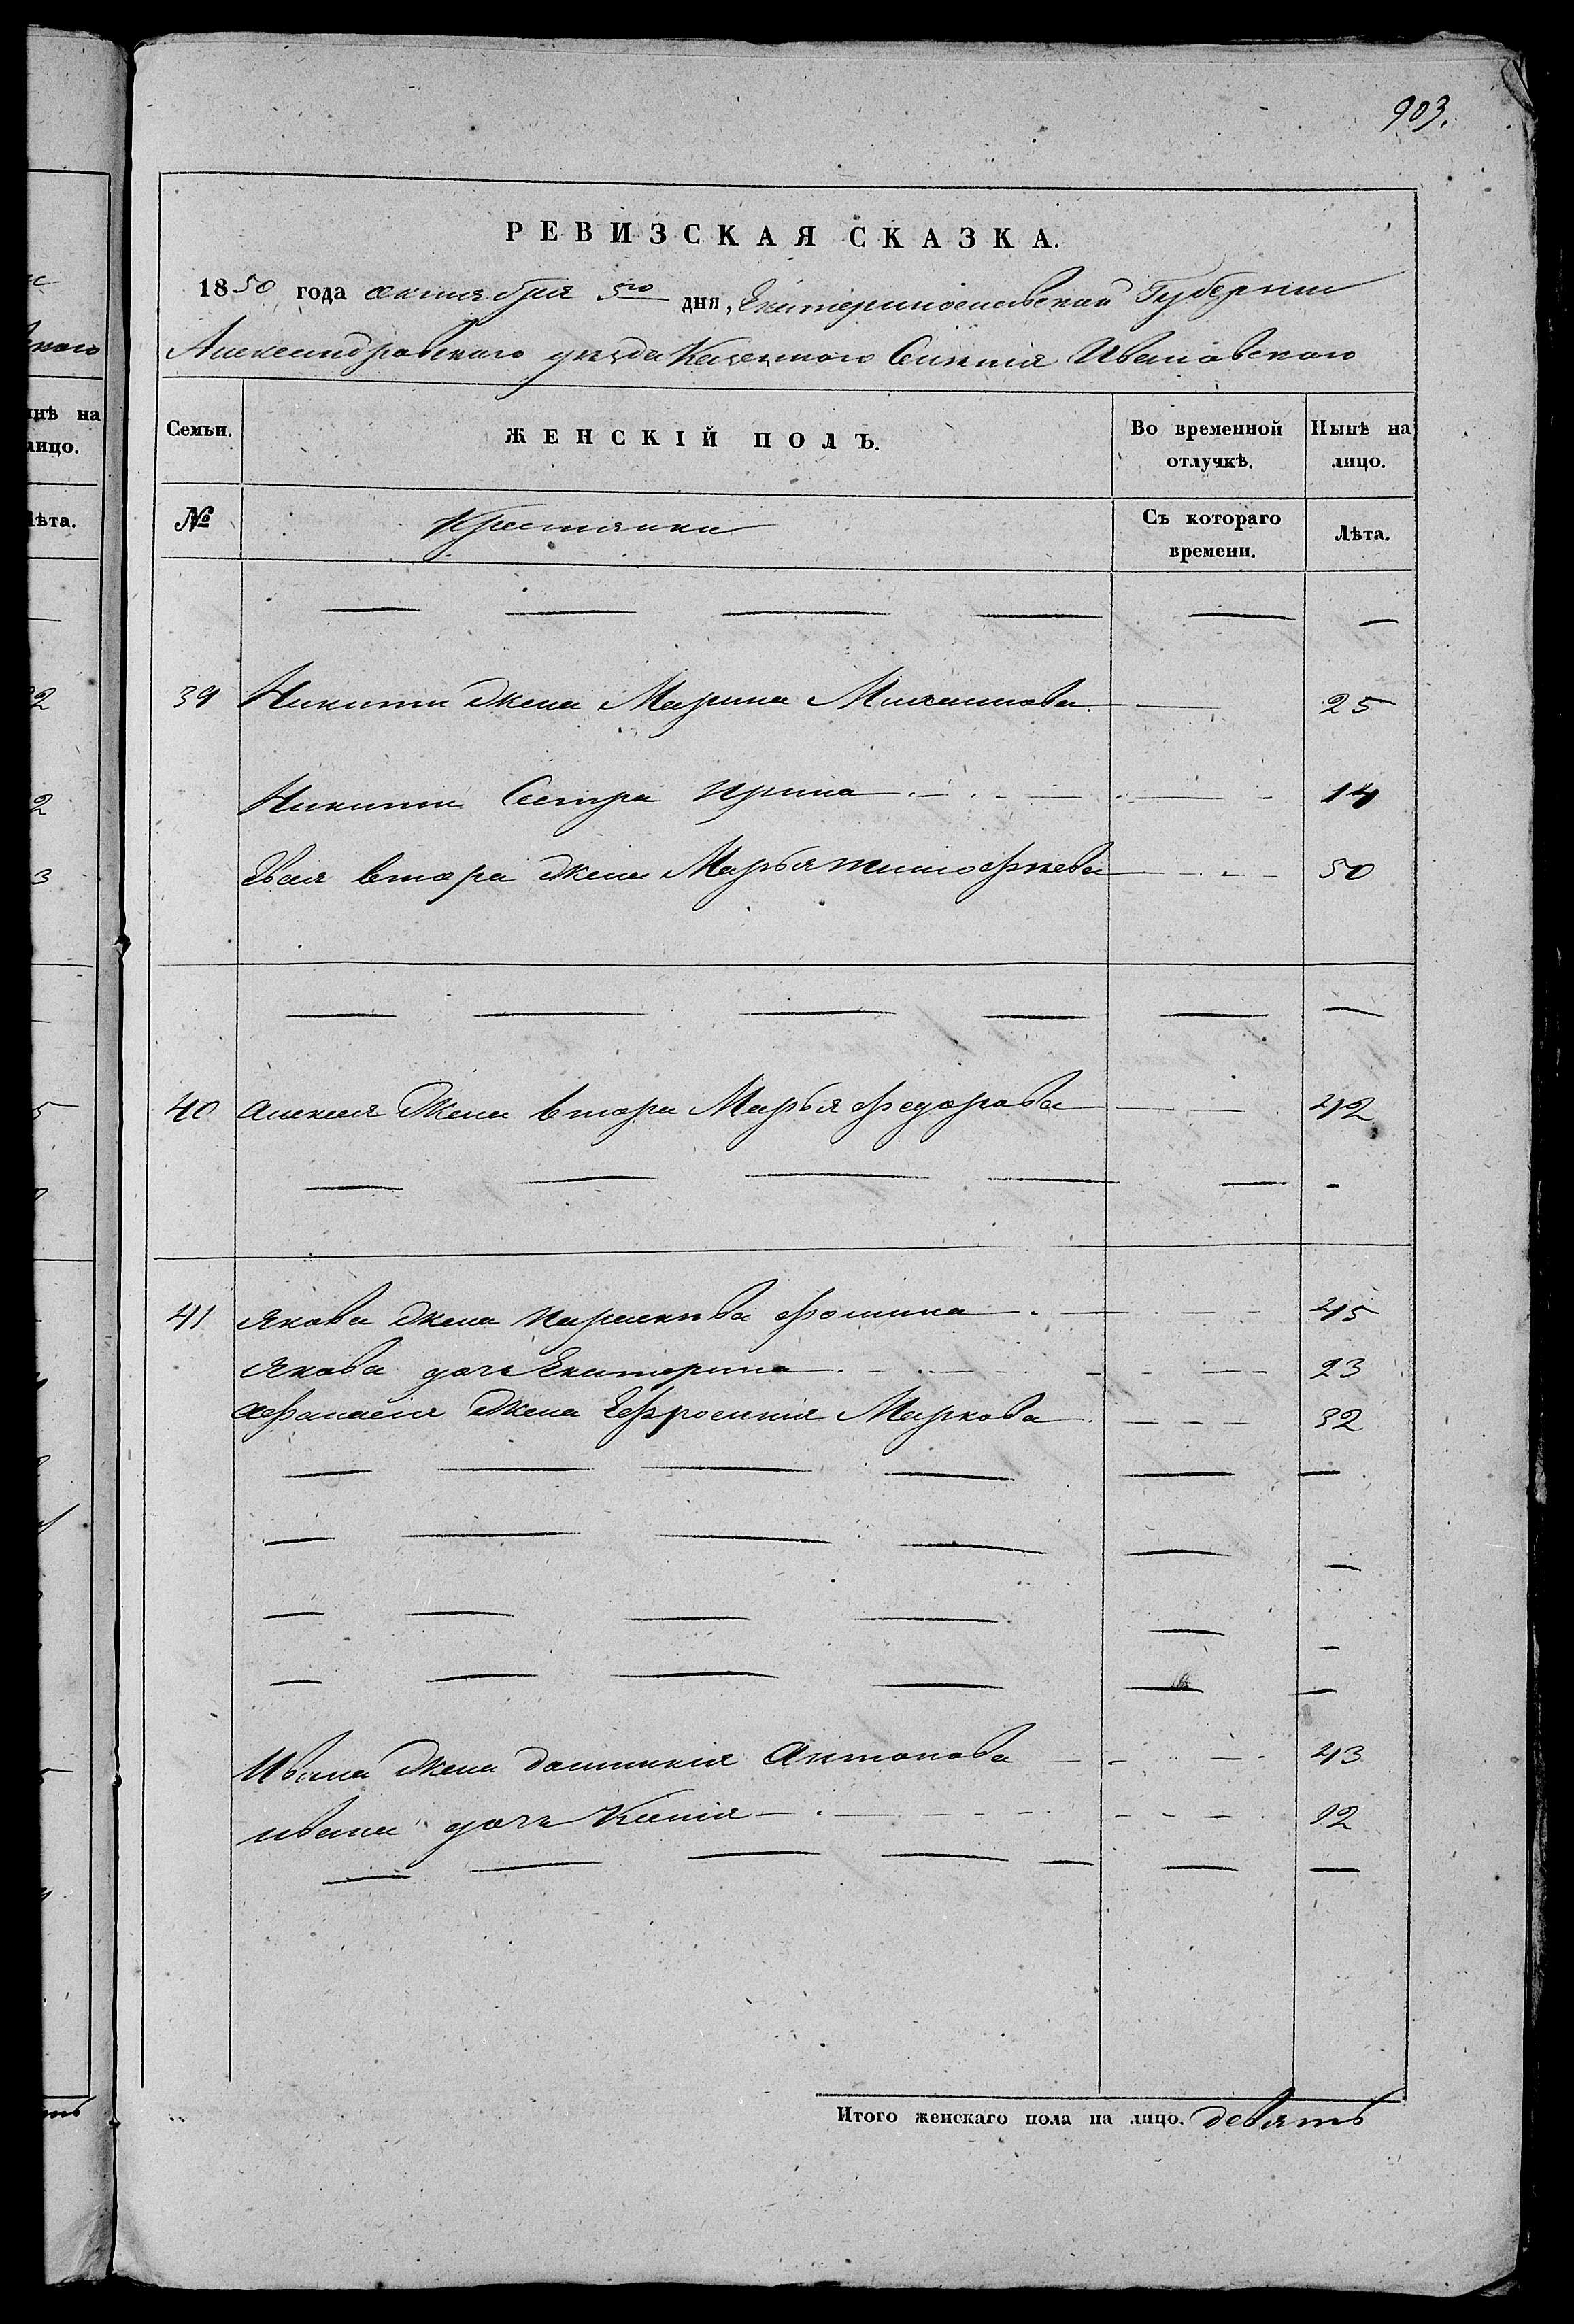 903.
РЕВИЗСКАЯ СКАЗКА.
1850 года октября 5го дня, Екатеринославской Губернии
Александровского уезда Казенного Селения Ивановского
Семьи. ЖЕНСКІЙ ПОЛЪ. Во временной отлучкѣ. Нынѣ на лицо.
№ Крестьянки Съ котораго времени. Лѣта.
39 Никити жена Марина Михаилова 25
Никити Сестра Ирина 14
втора жена Марья Тимофеева 50
40 Алексея жена втора Марья Федорова 42
41 Якова жена Параскева Фомина 45
Якова дочь Екатерина 23
Афанасия жена Ефросиния Маркова 32
Ивана жена Антонова 43
Ивана дочь Ксения 12
Итого женскаго пола на лицо. девять
нѣ на
лицо.
лѣта.